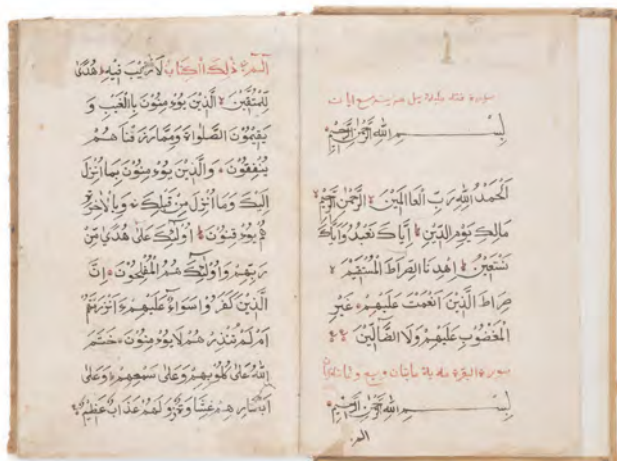 سورة فاتحة
بســـــــم الله الرحمن الرحيم
اَلْحَمْدُ لِلّٰهِ رَبِّ الْعَالَمِينَ الرَّحْمٰنِ الرَّحِيمِ
مَالِكِ يَوْمِ الدِّينِ إِيَّاكَ نَعْبُدُ وَإِيَّاكَ
نَسْتَعِينُ اِهْدِنَا الصِّرَاطَ الْمُسْتَقِيمَ
صِرَاطَ الَّذِينَ اَنْعَمْتَ عَلَيْهِمْ غَيْرِ
الْمَغْضُوبِ عَلَيْهِمْ وَلَا الضَّالِّينَ
سورة البقرة
بســـــــم الله الرحمن الرحيم
الم
الٓمٓ ذٰلِكَ الْكِتَابُ لَا رَيْبَ فِيهِ هُدًى
لِلْمُتَّقِينَ الَّذِينَ يُوْمِنُوْنَ بِاالْغَيْبِ وَ
يُقِيمُوْنَ الصَّلَواةَ وَمِمَّا رَزَقْنَاهُمْ
يُنْفِقُوْنَ وَالَّذِينَ يُوْمِنُوْنَ بِمَا اُنْزِلَ
اِلَيْكَ وَمَا اُنْزِلَ مِنْ قَبْلِكَ وَبِالْاٰخِرَةِ
هُمْ يُوْقِنُوْنَ اُولٰٓئِكَ عَلٰى هُدًى مِنْ
رَبِّهِمْ وَاُولٰٓئِكَ هُمُ الْمُفْلِحُوْنَ اِنَّ
الَّذِينَ كَفَرُوْا سَوَاءٌ عَلَيْهِمْ ءَاَنْذَرْتَهُمْ
اَمْ لَمْ تُنْذِرْهُمْ لَا يُوْمِنُوْنَ خَتَمَ
اللهُ عَلٰى قُلُوْبِهِمْ وَعَلٰى سَمْعِهِمْ وَعَلٰى
اَبْصَارِهِمْ غِشَاوَةٌ وَلَهُمْ عَذَابٌ عَظِيْمٌ